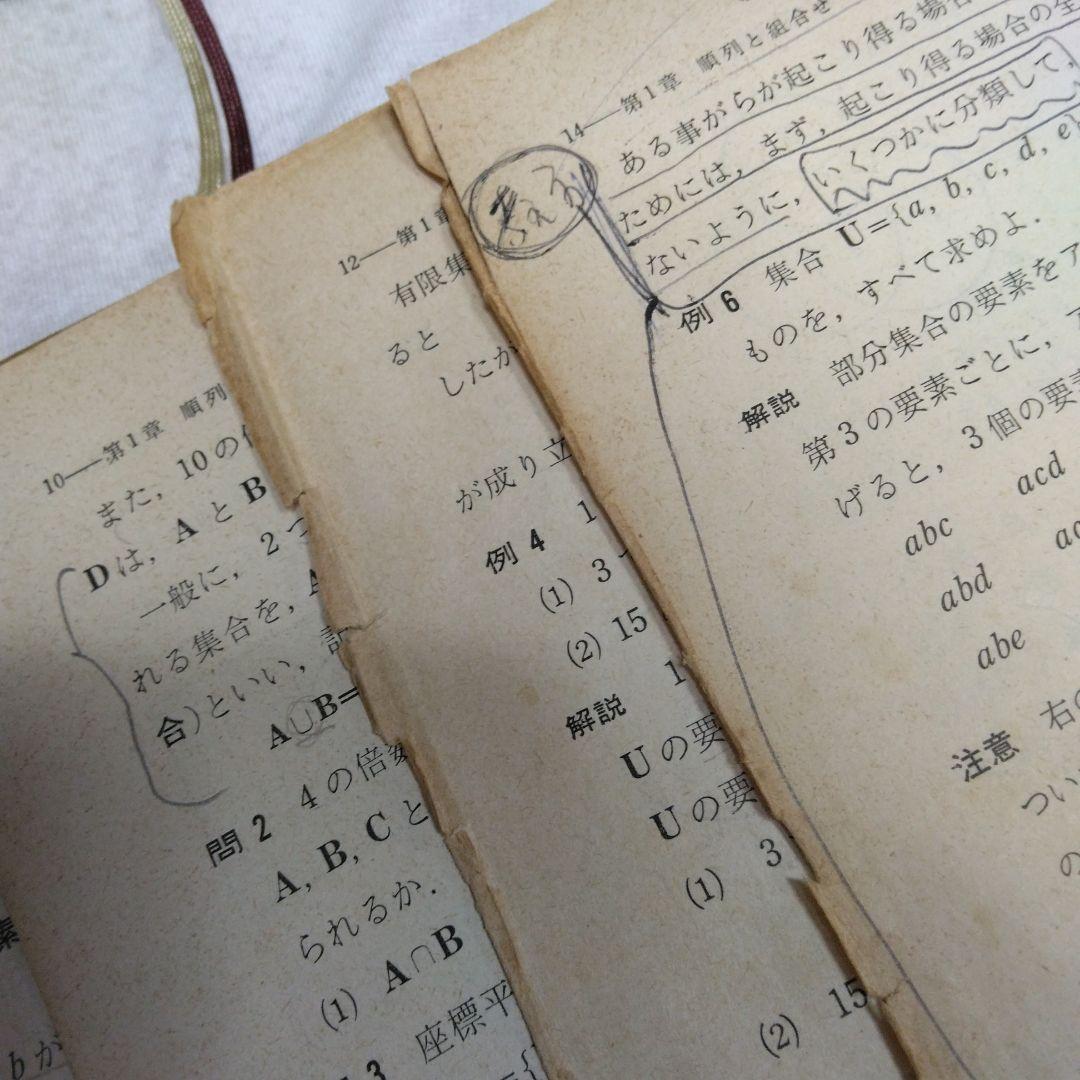 10――第1章 順列
また,10の
Dは,AとB
一般に,2つ
れる集合を,A
合)といい,
A∪B=
問2 4の倍数
A, B, Cと
られるか.
(1) A∩B
3 座標平
={
素
bか
12――第1章
有限集
ると
したが
が成り立
例4 1
(1) 3
(2) 15
解説 1
Uの要
Uの要
(1) 3
(2) 15
考える
14――第1章 順列と組合せ
ある事がらが起こり得る場合
ためには,まず,起こり得る場合の全
ないように,いくつかに分類して,
例6 集合 U={a, b, c, d, e}
ものを,すべて求めよ.
解説 部分集合の要素をア
第3の要素ごとに,
げると,3個の要素
abc acd
abd
abe
注意 右の
つい
の